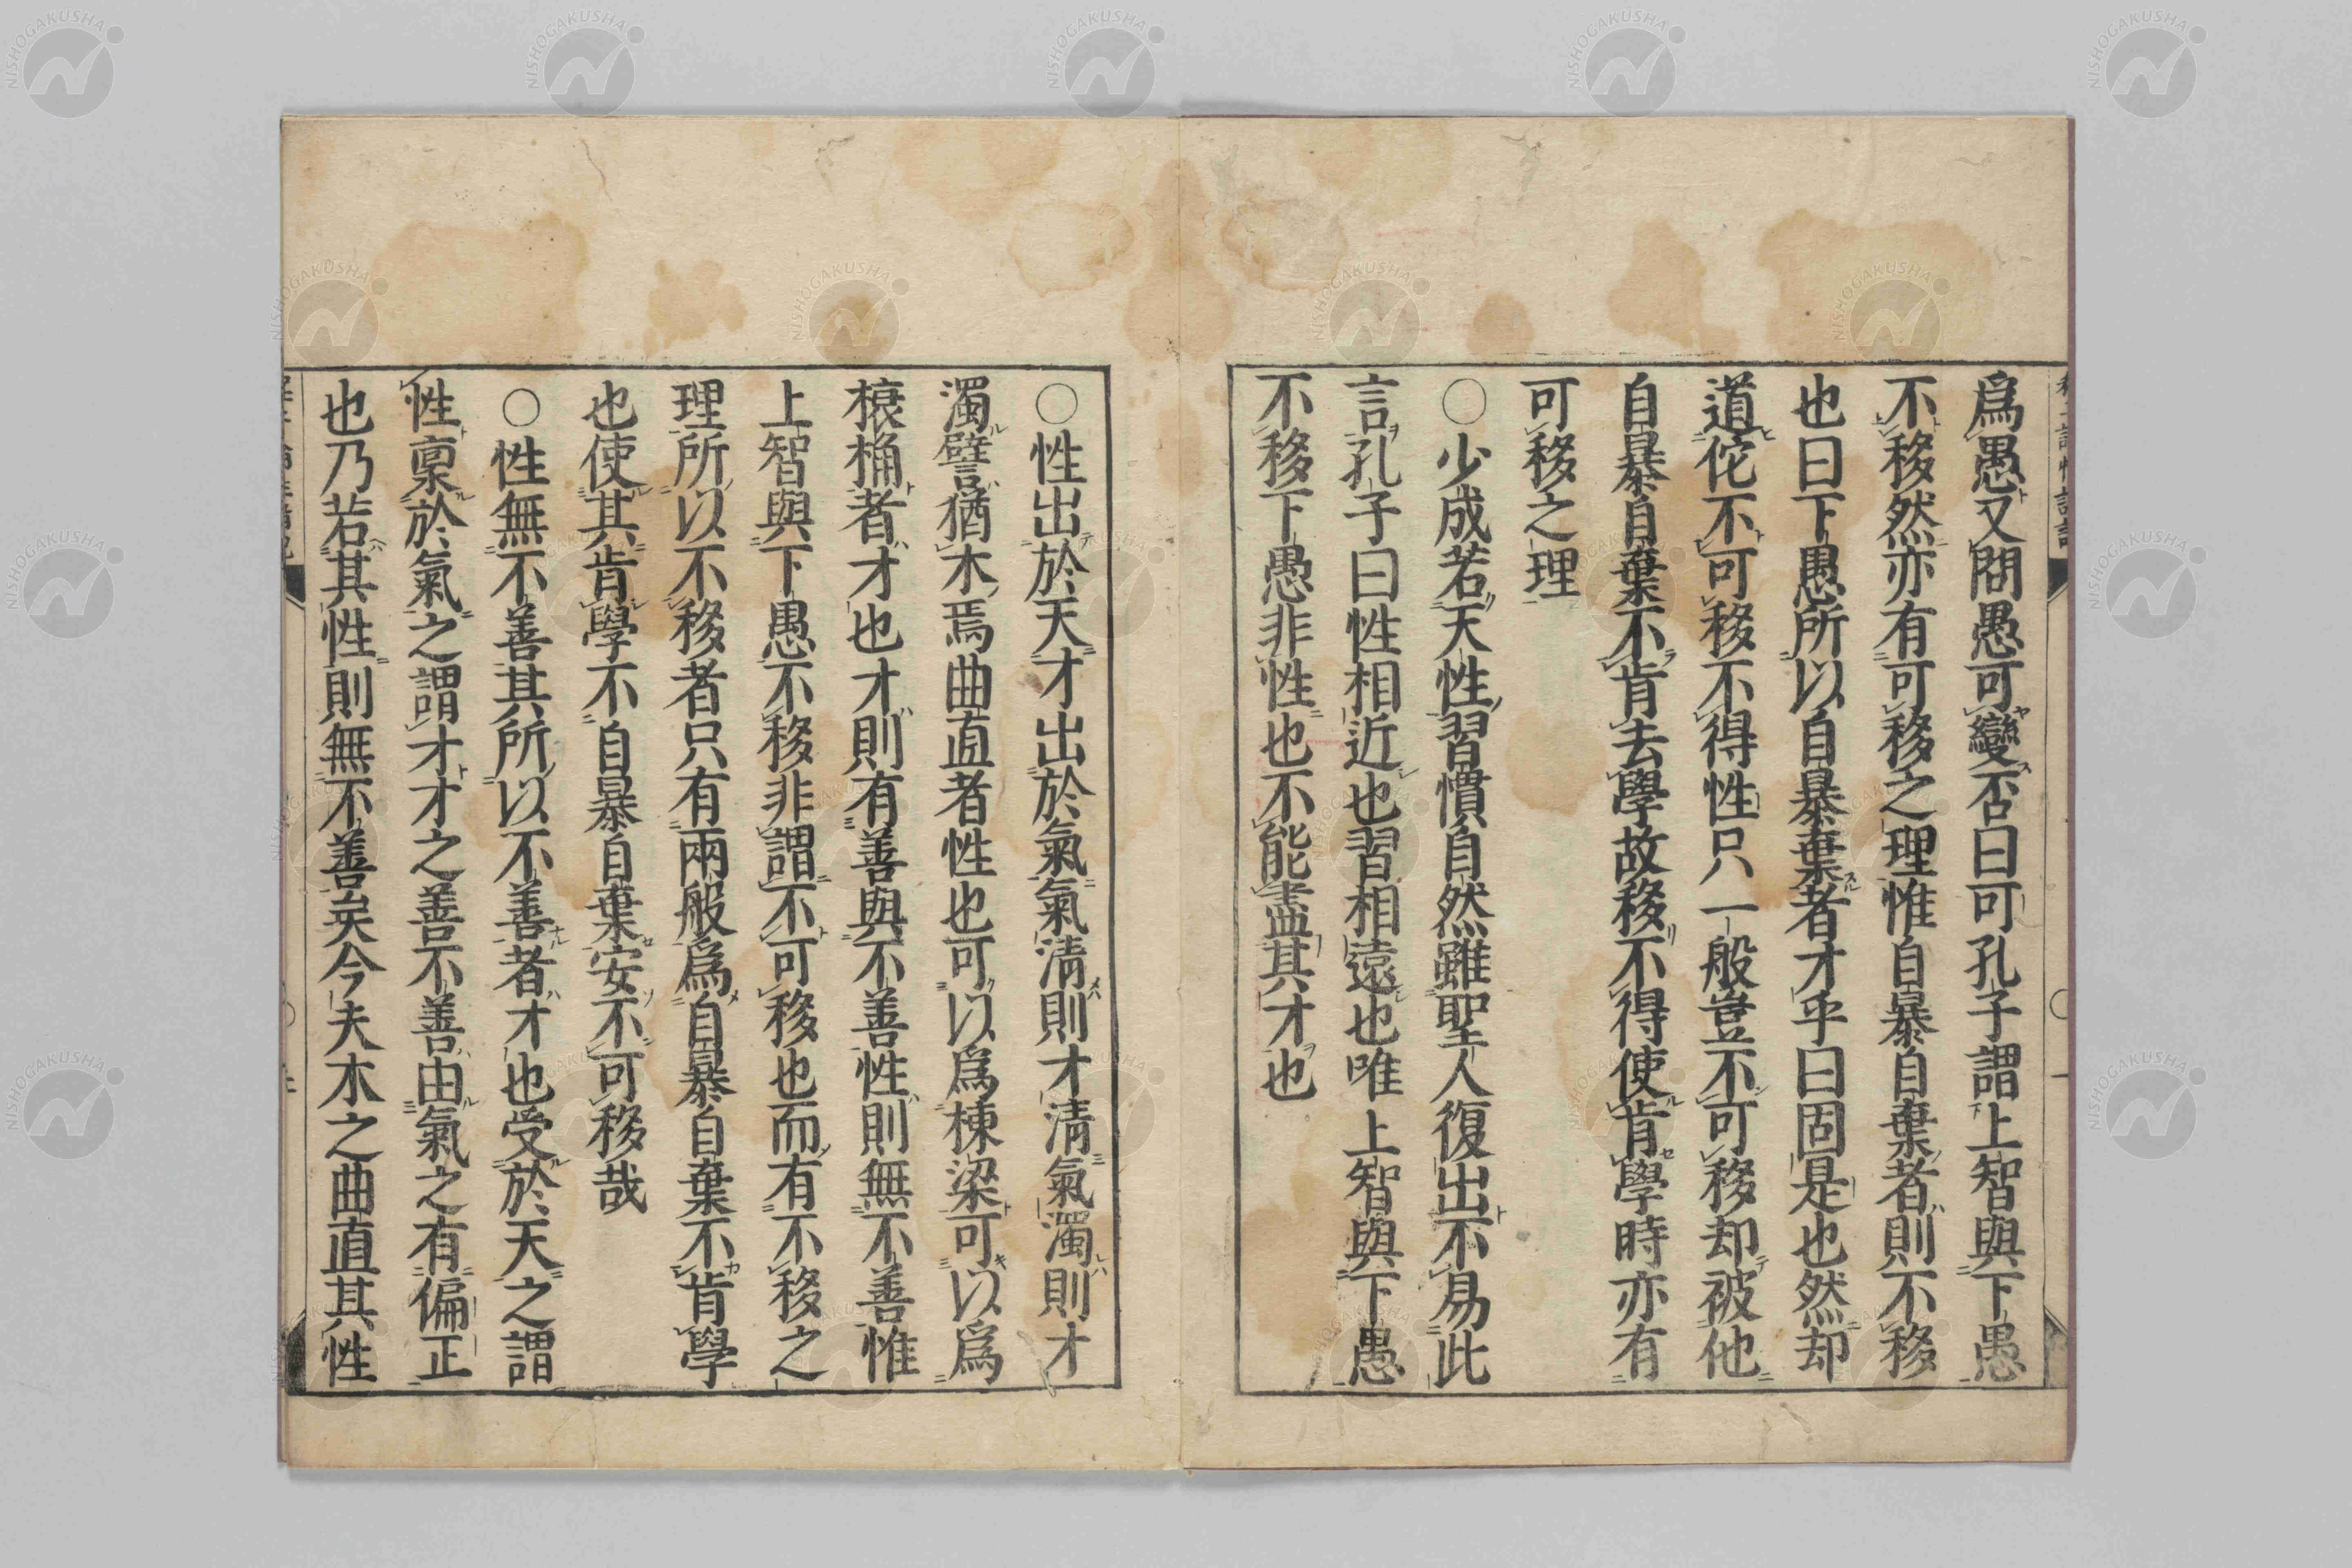 爲愚又問愚可變否曰可孔子謂上智與下愚
不移然亦有可移之理惟自暴自棄者則不移
也曰下愚所以自暴棄者才乎曰固是也然却
道佗不可移不得性只一般豈不可移却被他
自暴自棄不肯去學故移不得使肯學時亦有
可移之理
○少成若天性習慣自然雖聖人復出不易此
言孔子曰性相近也習相遠也唯上智與下愚
不移下愚非性也不能盡其才也
○性出於天才出於氣氣淸則才淸氣濁則才
濁譬猶木焉曲直者性也可以爲棟梁可以爲
榱桷者才也才則有善與不善性則無不善惟
上智與下愚不移非謂不可移也而有不移之
理所以不移者只有兩般爲自暴自棄不肯學
也使其肯學不自暴自棄安不可移哉
○性無不善其所以不善者才也受於天之謂
性稟於氣之謂才才之善不善由氣之有偏正
也乃若其性則無不善矣今夫木之曲直其性
NISHOGAKUSHA